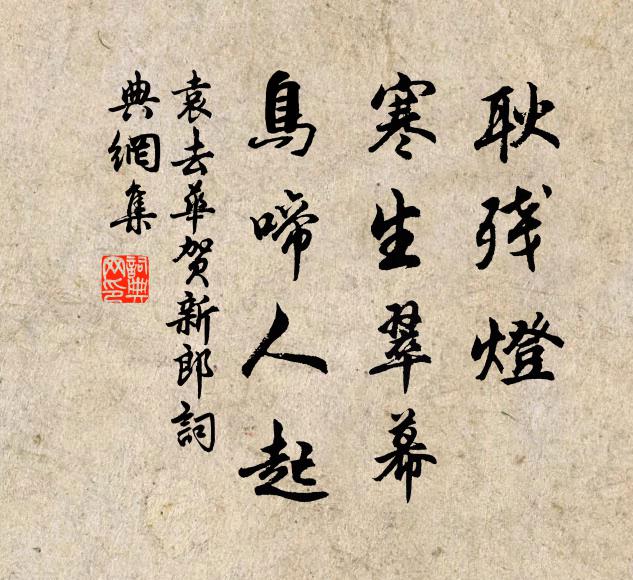 耿残燈
寒生翠幕
鳥啼人起
袁去華賀新郎詞
典網集
詞典網印